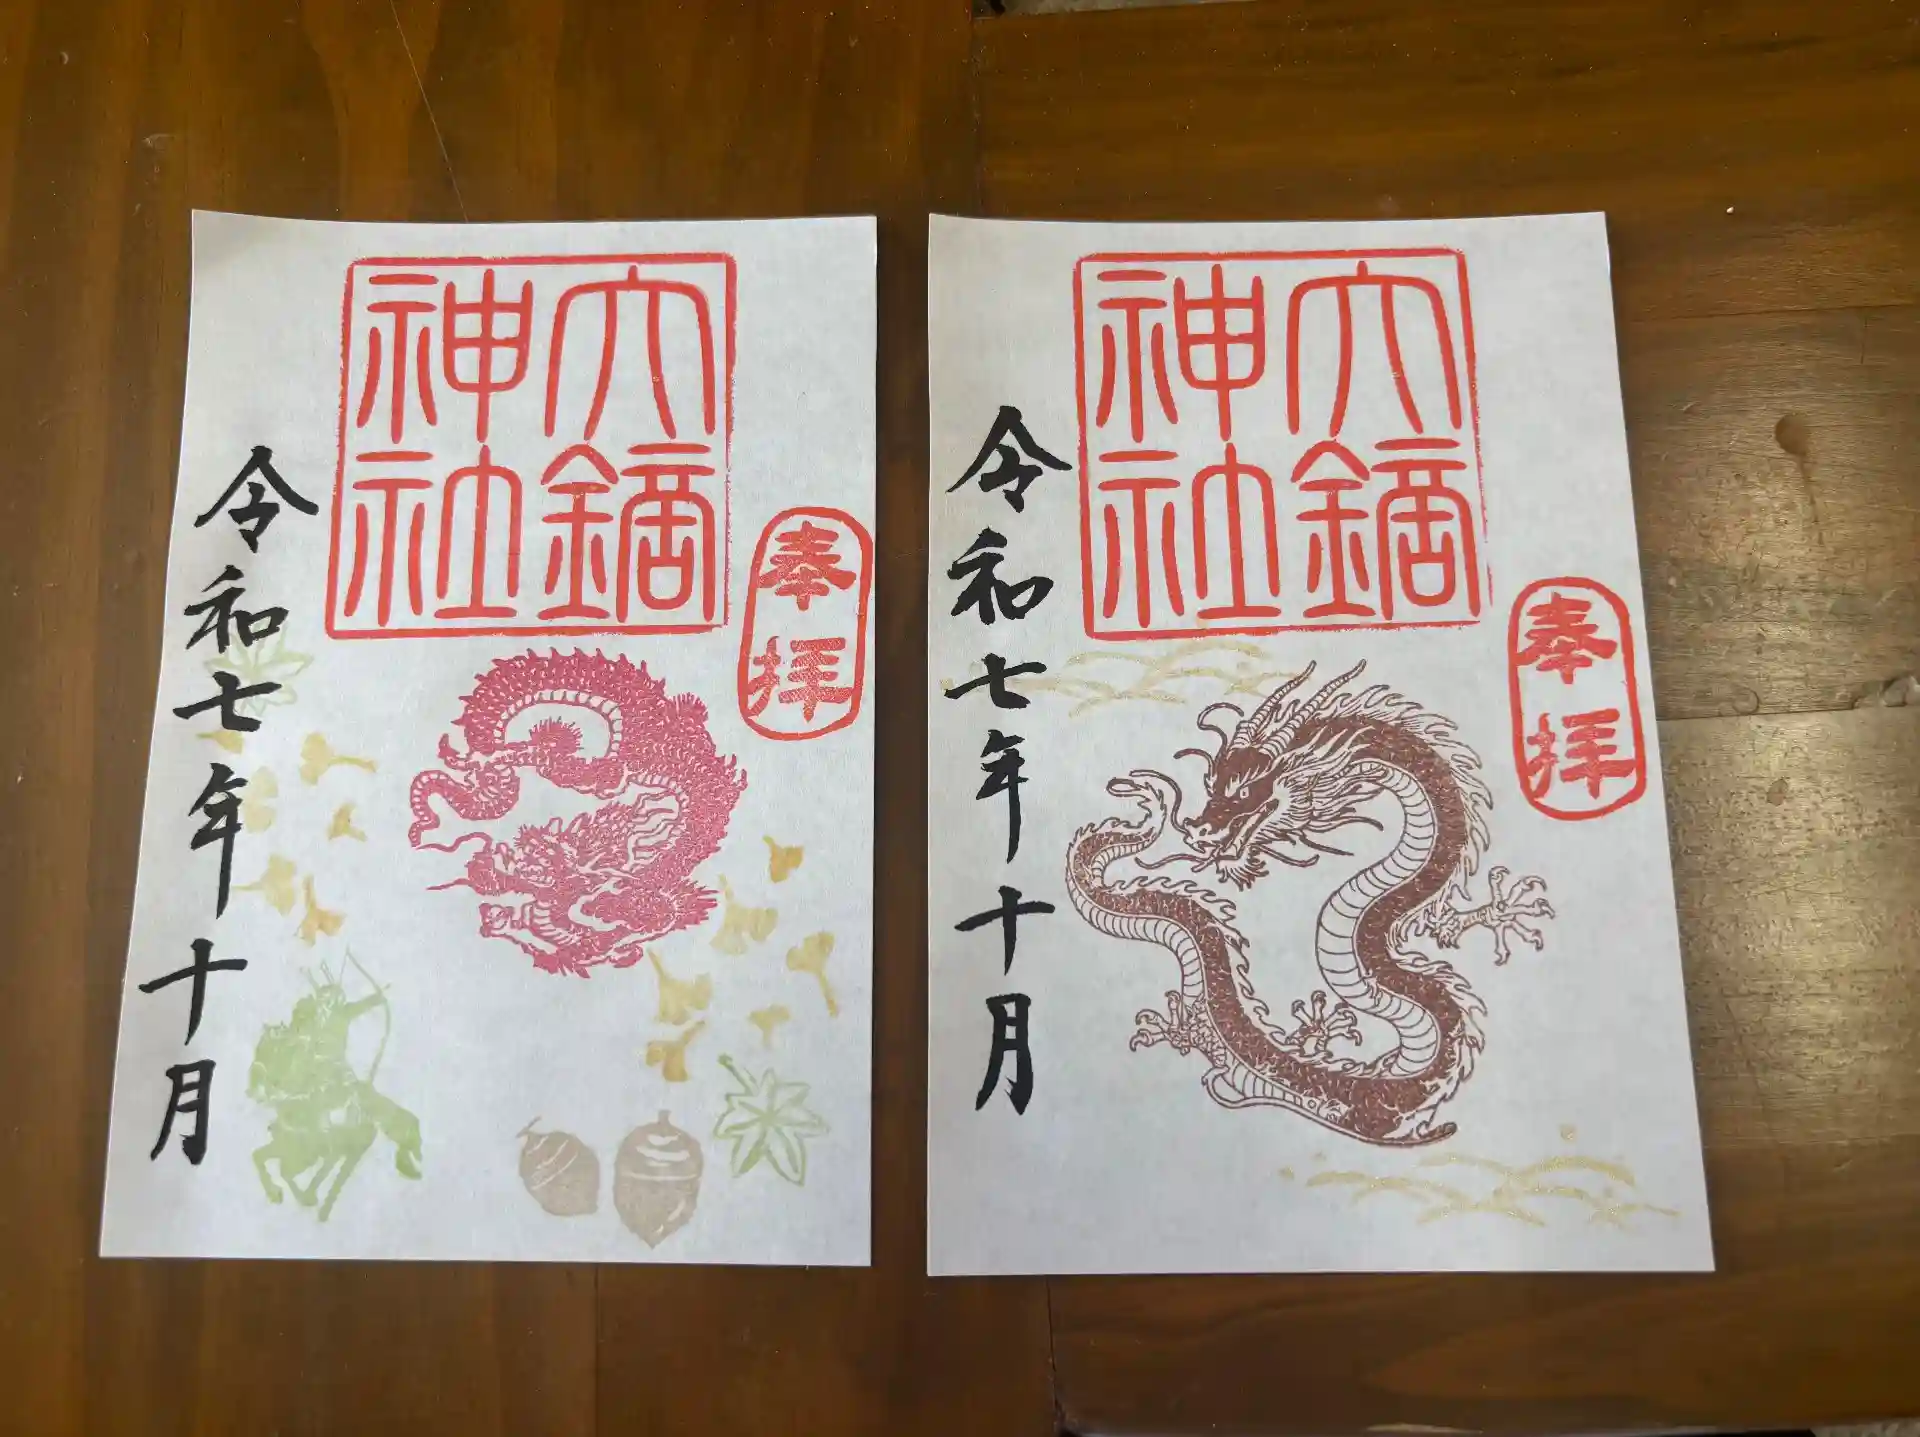 大鏑
神社
奉拝
令和七年十月
大鏑
神社
奉拝
令和七年十月